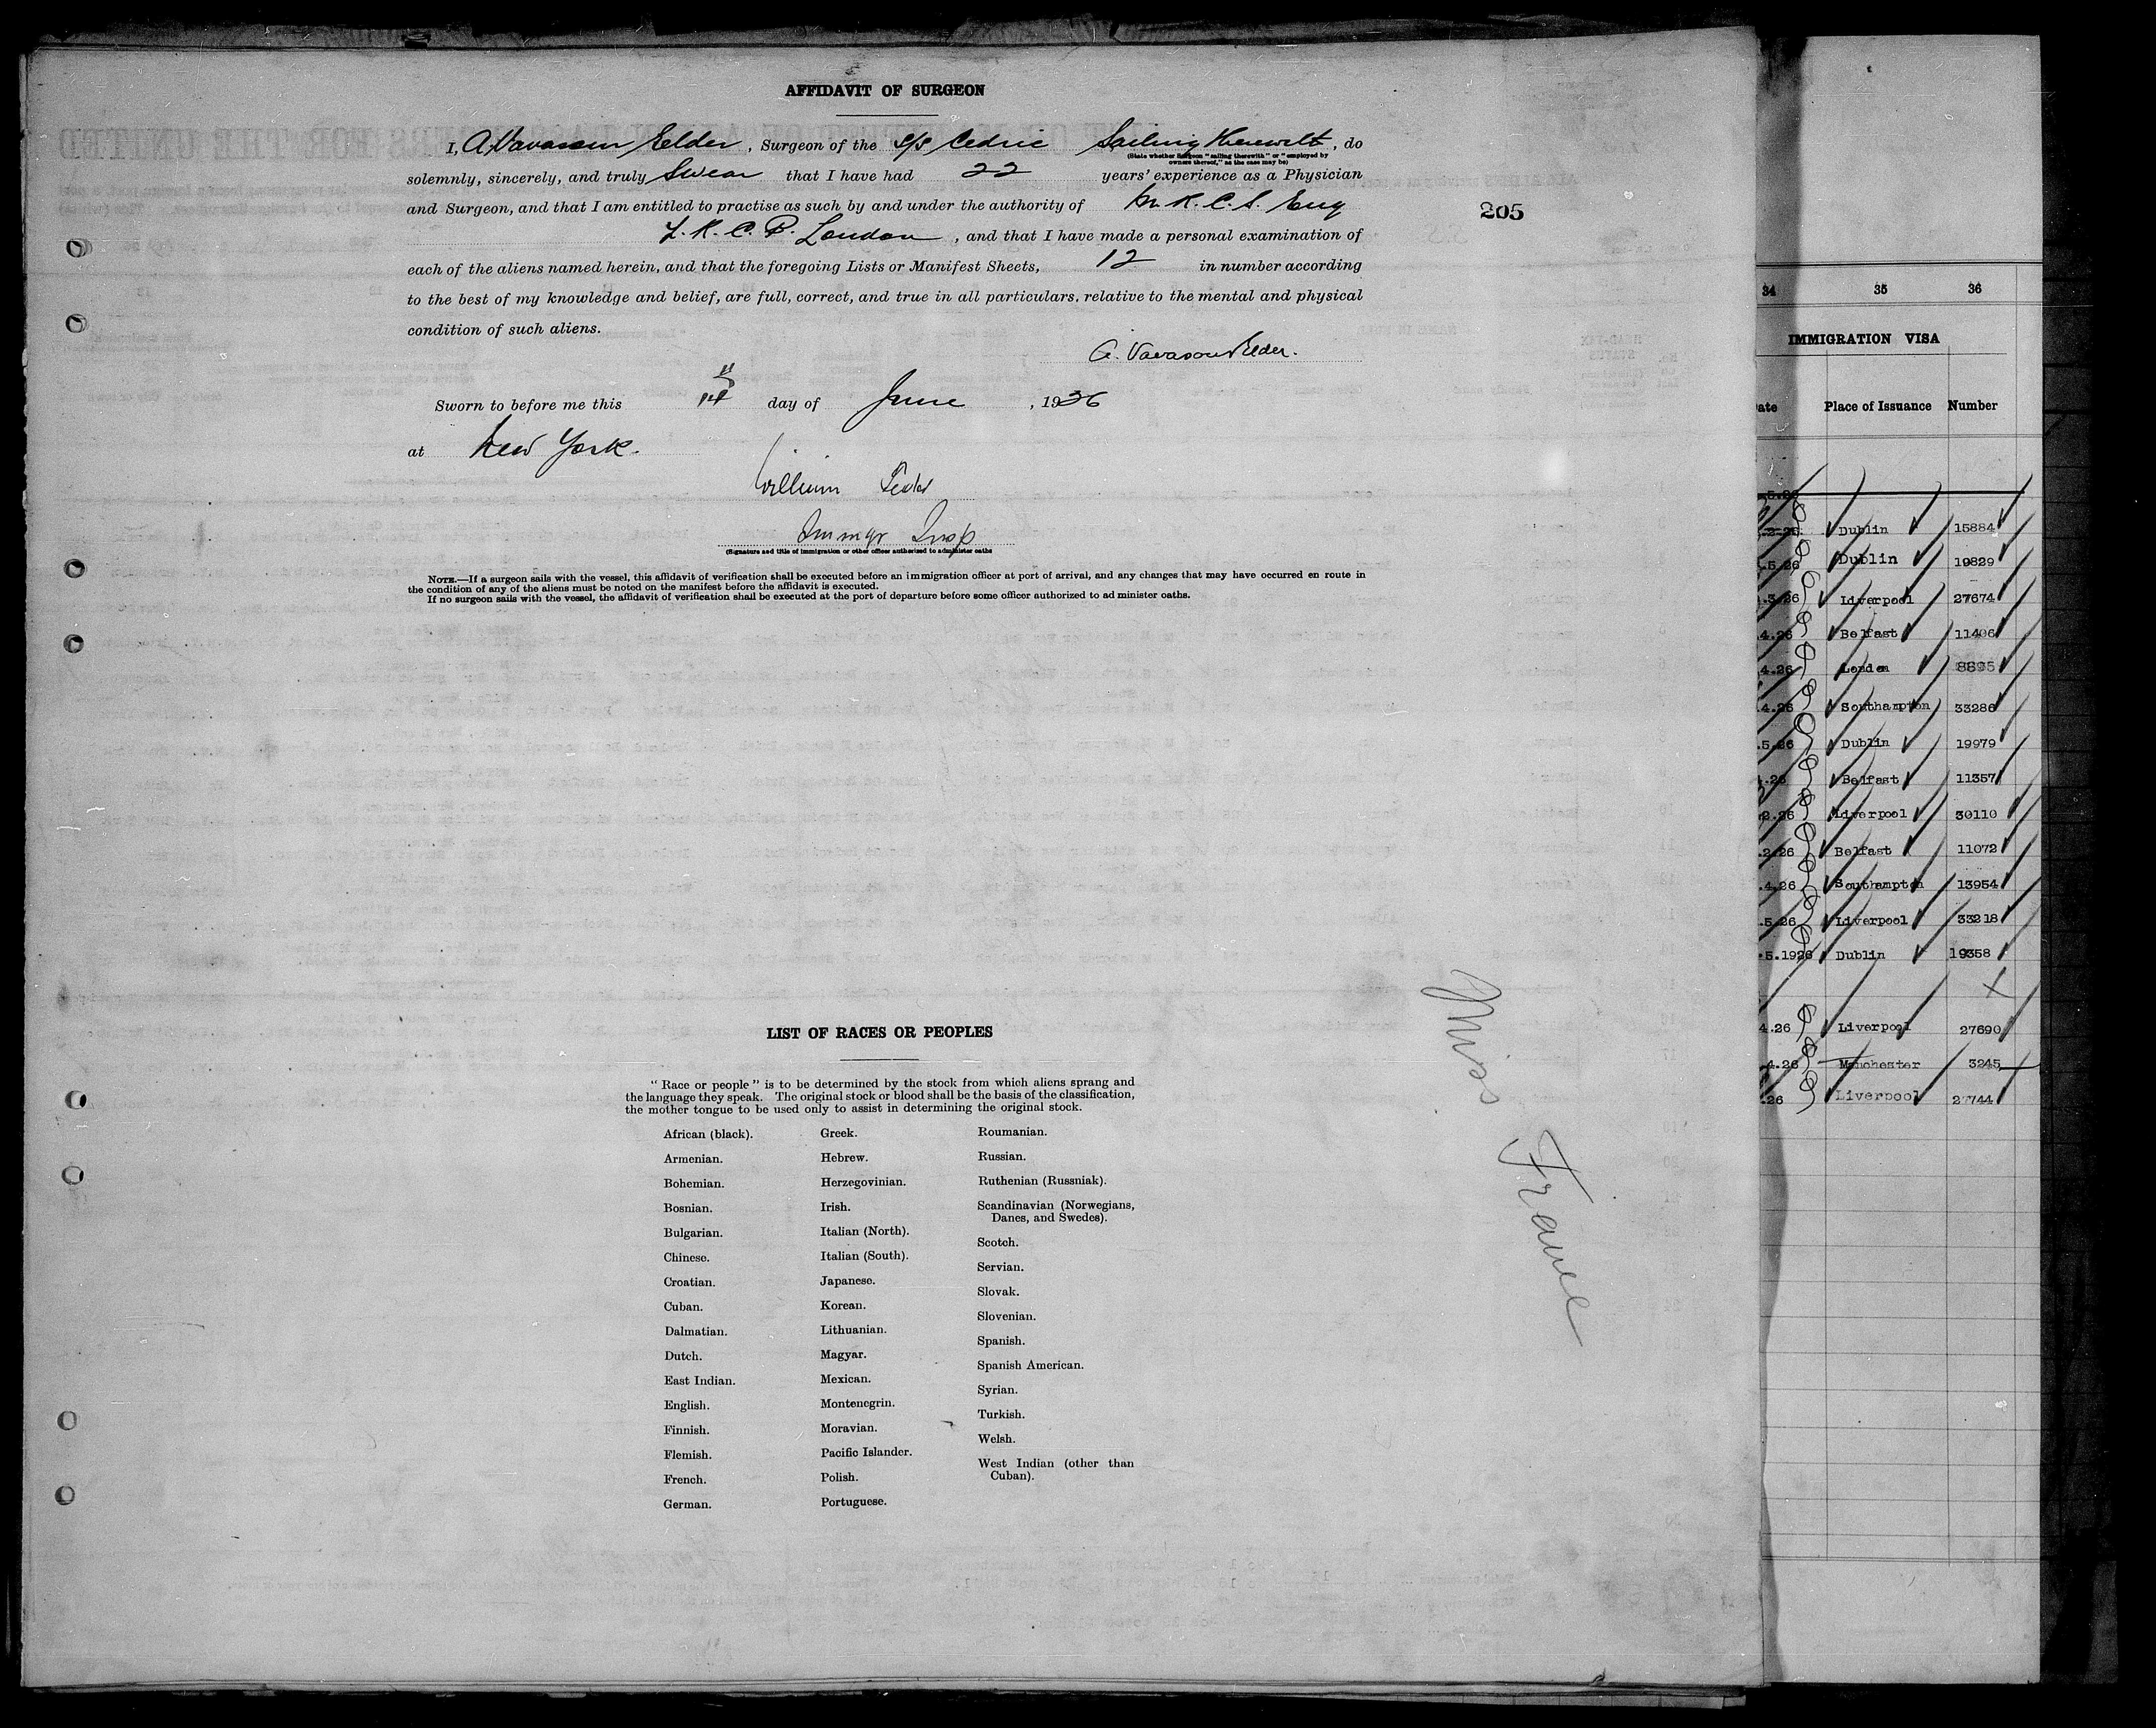 AFFIDAVIT OF SURGEON
I, A Vavasour Elder, Surgeon of the S/S Cedric Sailing Therewith, do
(State whether Surgeon "sailing therewith" or "employed by
owners thereof," as the case may be)
solemnly, sincerely, and truly Swear that I have had 22 years' experience as a Physician
and Surgeon, and that I am entitled to practise as such by and under the authority of M.R.C.S. Eng
205
L.R.C.P. London, and that I have made a personal examination of
each of the aliens named herein, and that the foregoing Lists or Manifest Sheets, 12 in number according
to the best of my knowledge and belief, are full, correct, and true in all particulars, relative to the mental and physical
condition of such aliens.
A. Vavasour Elder.
Sworn to before me this day of June, 1926
at New York.
William
Immgr Insp
(Signature and title of immigration or other officer authorized to administer oaths
NOTE.—If a surgeon sails with the vessel, this affidavit of verification shall be executed before an immigration officer at port of arrival, and any changes that may have occurred en route in
the condition of any of the aliens must be noted on the manifest before the affidavit is executed.
If no surgeon sails with the vessel, the affidavit of verification shall be executed at the port of departure before some officer authorized to administer oaths.
LIST OF RACES OR PEOPLES
"Race or people" is to be determined by the stock from which aliens sprang and
the language they speak. The original stock or blood shall be the basis of the classification,
the mother tongue to be used only to assist in determining the original stock.
African (black).
Armenian.
Bohemian.
Bosnian.
Bulgarian.
Chinese.
Croatian.
Cuban.
Dalmatian.
Dutch.
East Indian.
English.
Finnish.
Flemish.
French.
German.
Greek.
Hebrew.
Herzegovinian.
Irish.
Italian (North).
Italian (South).
Japanese.
Korean.
Lithuanian.
Magyar.
Mexican.
Montenegrin.
Moravian.
Pacific Islander.
Polish.
Portuguese.
Roumanian.
Russian.
Ruthenian (Russniak).
Scandinavian (Norwegians,
Danes, and Swedes).
Scotch.
Servian.
Slovak.
Slovenian.
Spanish.
Spanish American.
Syrian.
Turkish.
Welsh.
West Indian (other than
Cuban).
Miss Frame
34 35 36
IMMIGRATION VISA
ate Place of Issuance Number
.5.26
.2.26 Dublin 15884
.5.26 Dublin 19829
.3.26 Liverpool 27674
.4.26 Belfast 11406
.4.26 London 8895
.4.26 Southampton 33286
.5.26 Dublin 19979
.26 Belfast 11357
.2.26 Liverpool 30110
.2.26 Belfast 11072
.4.26 Southampton 13954
.5.26 Liverpool 33218
.5.1926 Dublin 19358
4.26 Liverpool 27690
.4.26 Manchester 3245
.26 Liverpool 27744